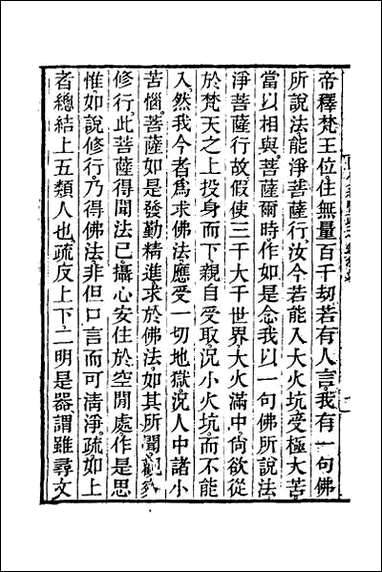 帝釋梵王位住無量百千劫若有人言我有一句佛
所說法能淨菩薩行汝今若能入大火坑受極大苦
當以相與菩薩爾時作如是念我以一句佛所說法
淨菩薩行故假使三千大千世界大火滿中尙欲從
於梵天之上投身而下親自受取況小火坑而不能
入然我今者爲求佛法應受一切地獄況人中諸小
苦惱菩薩如是發勤精進求於佛法如其所聞觀察
修行此菩薩得聞法已攝心安住於空閒處作是思
惟如說修行乃得佛法非但口言而可淸淨疏如上
者總結上五類人也疏反上下二明是器謂雖尋文